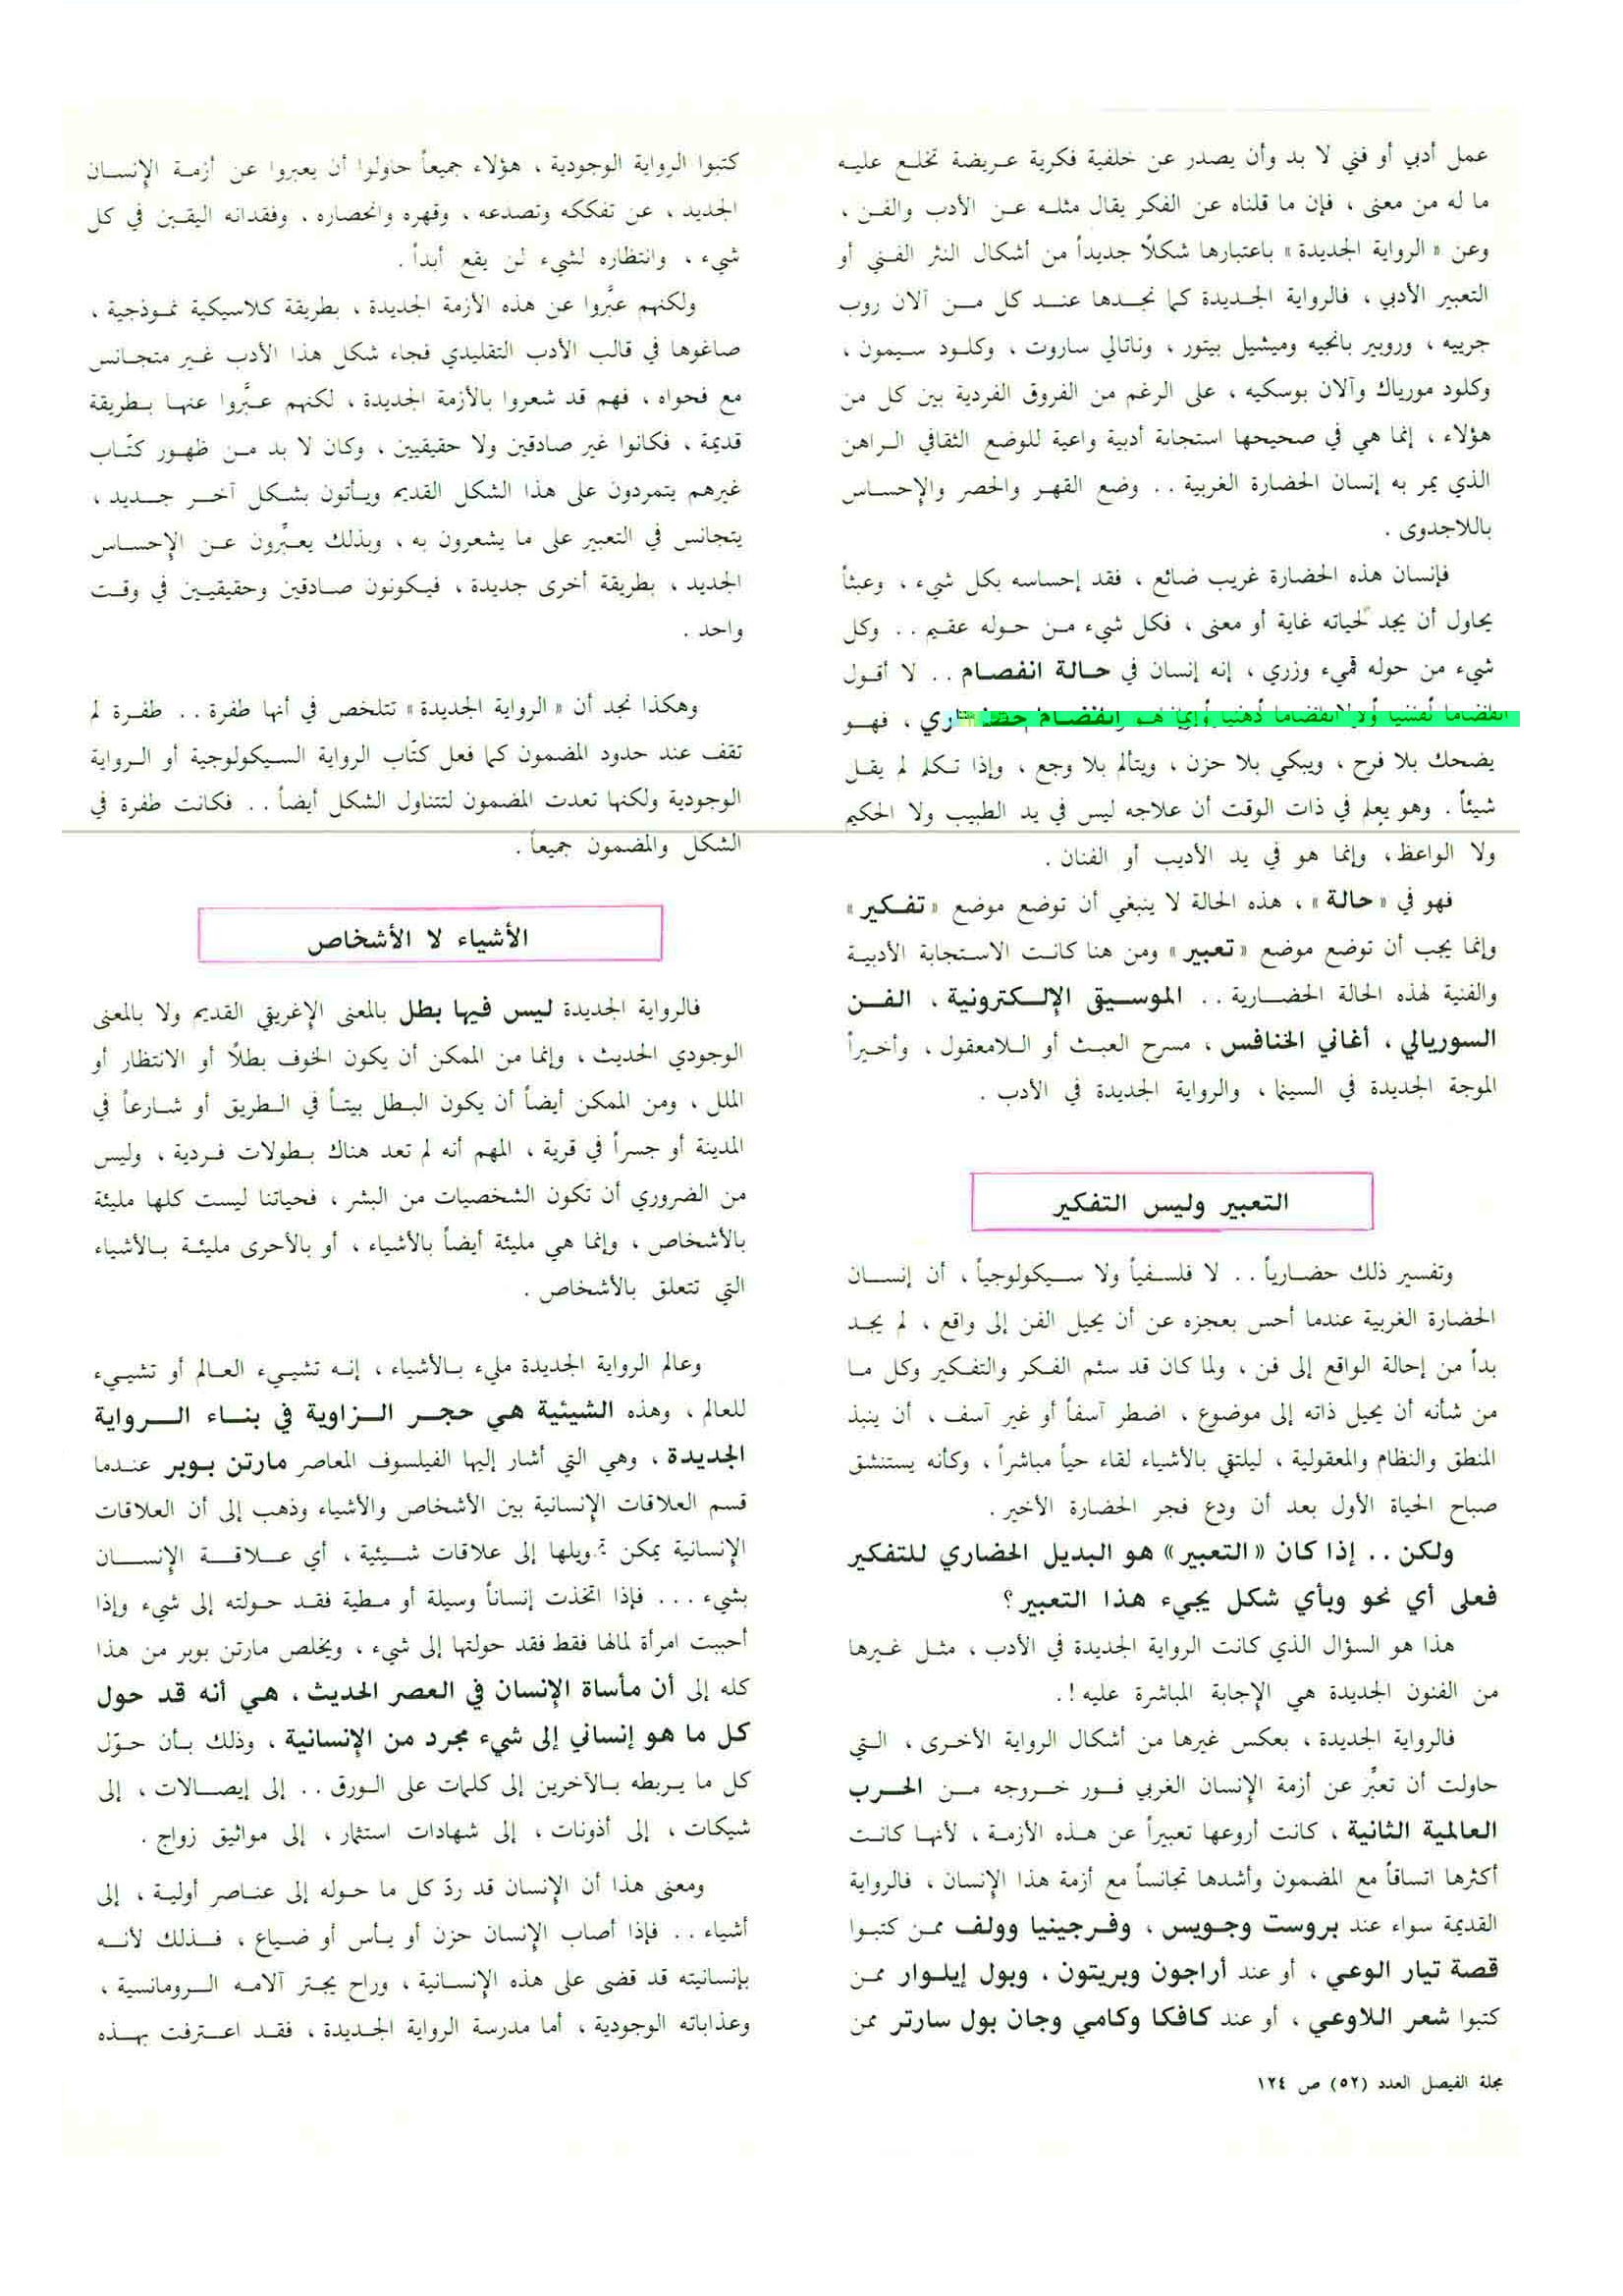 عمل أدبي أو فني لا بد وأن يصدر عن خلفية فكرية عريضة تخلع عليه
ما له من معنى ، فإن ما قلناه عن الفكر يقال مثله عن الأدب والفن ،
وعن « الرواية الجديدة » باعتبارها شكلاً جديداً من أشكال النثر الفني أو
التعبير الأدبي ، فالرواية الجديدة كما نجدها عند كل من آلان روب
جرييه ، وروبير بانجيه وميشيل بيتور ، وناتالي ساروت ، وكلود سيمون ،
وكلود مورياك وآلان بوسكيه ، على الرغم من الفروق الفردية بين كل من
هؤلاء ، إنما هي في صحيحها استجابة أدبية واعية للوضع الثقافي الراهن
الذي يمر به إنسان الحضارة الغربية .. وضع القهر والحصر والإحساس
باللاجدوى .
فإنسان هذه الحضارة غريب ضائع ، فقد إحساسه بكل شيء ، وعبثاً
يحاول أن يجد لحياته غاية أو معنى ، فكل شيء من حوله عقيم .. وكل
شيء من حوله قميء وزري ، إنه إنسان في حالة انفصام .. لا أقول
انفصاما نفسيا أو لا انفصاما ذهنيا وإنما هو انفصام حضاري ، فهو
يضحك بلا فرح ، ويبكي بلا حزن ، ويتألم بلا وجع ، وإذا تكلم لم يقل
شيئاً . وهو يعلم في ذات الوقت أن علاجه ليس في يد الطبيب ولا الحكيم
ولا الواعظ ، وإنما هو في يد الأديب أو الفنان .
فهو في « حالة » ، هذه الحالة لا ينبغي أن توضع موضع « تفكير »
وإنما يجب أن توضع موضع « تعبير » ومن هنا كانت الاستجابة الأدبية
والفنية لهذه الحالة الحضارية .. الموسيقى الإلكترونية ، الفن
السوريالي ، أغاني الخنافس ، مسرح العبث أو اللامعقول ، وأخيراً
الموجة الجديدة في السينما ، والرواية الجديدة في الأدب .
التعبير وليس التفكير
وتفسير ذلك حضارياً .. لا فلسفياً ولا سيكولوجياً ، أن إنسان
الحضارة الغربية عندما أحس بعجزه عن أن يحيل الفن إلى واقع ، لم يجد
بداً من إحالة الواقع إلى فن ، ولما كان قد سئم الفكر والتفكير وكل ما
من شأنه أن يحيل ذاته إلى موضوع ، اضطر آسفاً أو غير آسف ، أن ينبذ
المنطق والنظام والمعقولية ، ليلتقي بالأشياء لقاء حياً مباشراً ، وكأنه يستنشق
صباح الحياة الأول بعد أن ودع فجر الحضارة الأخير .
ولكن .. إذا كان « التعبير » هو البديل الحضاري للتفكير
فعلى أي نحو وبأي شكل يجيء هذا التعبير ؟
هذا هو السؤال الذي كانت الرواية الجديدة في الأدب ، مثل غيرها
من الفنون الجديدة هي الإجابة المباشرة عليه ! .
فالرواية الجديدة ، بعكس غيرها من أشكال الرواية الأخرى ، التي
حاولت أن تعبِّر عن أزمة الإنسان الغربي فور خروجه من الحرب
العالمية الثانية ، كانت أروعها تعبيراً عن هذه الأزمة ، لأنها كانت
أكثرها اتساقاً مع المضمون وأشدها تجانساً مع أزمة هذا الإنسان ، فالرواية
القديمة سواء عند بروست وجويس ، وفرجينيا وولف ممن كتبوا
قصة تيار الوعي ، أو عند أراجون وبريتون ، وبول إيلوار ممن
كتبوا شعر اللاوعي ، أو عند كافكا وكامي وجان بول سارتر ممن
كتبوا الرواية الوجودية ، هؤلاء جميعاً حاولوا أن يعبروا عن أزمة الإنسان
الجديد ، عن تفككه وتصدعه ، وقهره وانحصاره ، وفقدانه اليقين في كل
شيء ، وانتظاره لشيء لن يقع أبداً .
ولكنهم عبَّروا عن هذه الأزمة الجديدة ، بطريقة كلاسيكية نموذجية ،
صاغوها في قالب الأدب التقليدي فجاء شكل هذا الأدب غير متجانس
مع فحواه ، فهم قد شعروا بالأزمة الجديدة ، لكنهم عبَّروا عنها بطريقة
قديمة ، فكانوا غير صادقين ولا حقيقيين ، وكان لا بد من ظهور كتّاب
غيرهم يتمردون على هذا الشكل القديم ويأتون بشكل آخر جديد ،
يتجانس في التعبير على ما يشعرون به ، وبذلك يعبِّرون عن الإحساس
الجديد ، بطريقة أخرى جديدة ، فيكونون صادقين وحقيقيين في وقت
واحد .
وهكذا نجد أن « الرواية الجديدة » تتلخص في أنها طفرة .. طفرة لم
تقف عند حدود المضمون كما فعل كتّاب الرواية السيكولوجية أو الرواية
الوجودية ولكنها تعدت المضمون لتتناول الشكل أيضاً .. فكانت طفرة في
الشكل والمضمون جميعاً .
الأشياء لا الأشخاص
فالرواية الجديدة ليس فيها بطل بالمعنى الإغريقي القديم ولا بالمعنى
الوجودي الحديث ، وإنما من الممكن أن يكون الخوف بطلاً أو الانتظار أو
الملل ، ومن الممكن أيضاً أن يكون البطل بيتاً في الطريق أو شارعاً في
المدينة أو جسراً في قرية ، المهم أنه لم تعد هناك بطولات فردية ، وليس
من الضروري أن تكون الشخصيات من البشر ، فحياتنا ليست كلها مليئة
بالأشخاص ، وإنما هي مليئة أيضاً بالأشياء ، أو بالأحرى مليئة بالأشياء
التي تتعلق بالأشخاص .
وعالم الرواية الجديدة مليء بالأشياء ، إنه تشييء العالم أو تشييء
للعالم ، وهذه الشيئية هي حجر الزاوية في بناء الرواية
الجديدة ، وهي التي أشار إليها الفيلسوف المعاصر مارتن بوبر عندما
قسم العلاقات الإنسانية بين الأشخاص والأشياء وذهب إلى أن العلاقات
الإنسانية يمكن تحويلها إلى علاقات شيئية ، أي علاقة الإنسان
بشيء ... فإذا اتخذت إنساناً وسيلة أو مطية فقد حولته إلى شيء وإذا
أحببت امرأة لمالها فقط فقد حولتها إلى شيء ، ويخلص مارتن بوبر من هذا
كله إلى أن مأساة الإنسان في العصر الحديث ، هي أنه قد حول
كل ما هو إنساني إلى شيء مجرد من الإنسانية ، وذلك بأن حوّل
كل ما يربطه بالآخرين إلى كلمات على الورق .. إلى إيصالات ، إلى
شيكات ، إلى أذونات ، إلى شهادات استثمار ، إلى مواثيق زواج .
ومعنى هذا أن الإنسان قد ردّ كل ما حوله إلى عناصر أولية ، إلى
أشياء .. فإذا أصاب الإنسان حزن أو يأس أو ضياع ، فذلك لأنه
بإنسانيته قد قضى على هذه الإنسانية ، وراح يجتر آلامه الرومانسية ،
وعذاباته الوجودية ، أما مدرسة الرواية الجديدة ، فقد اعترفت بهذه
مجلة الفيصل العدد (٥٢) ص ١٢٤